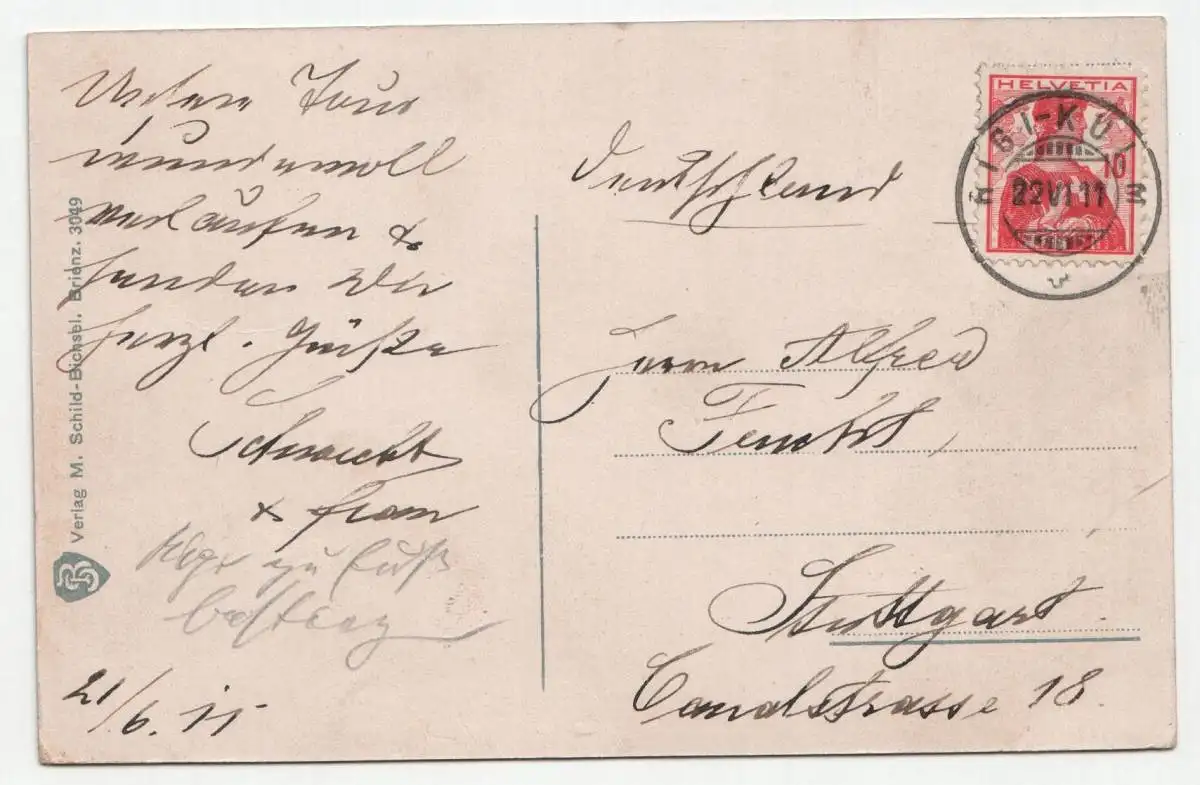 Unsere Tour
wundervoll
verlaufen &
senden Dir
herzl. Grüße
& Frau
zu Fuß
21/6. 11
Verlag M. Schild-Bichsel, Brienz. 3049
Deutschland
HELVETIA
10
RIGI-KULM
22 VI 11
Herrn Alfred
Stuttgart
Canalstrasse 18.